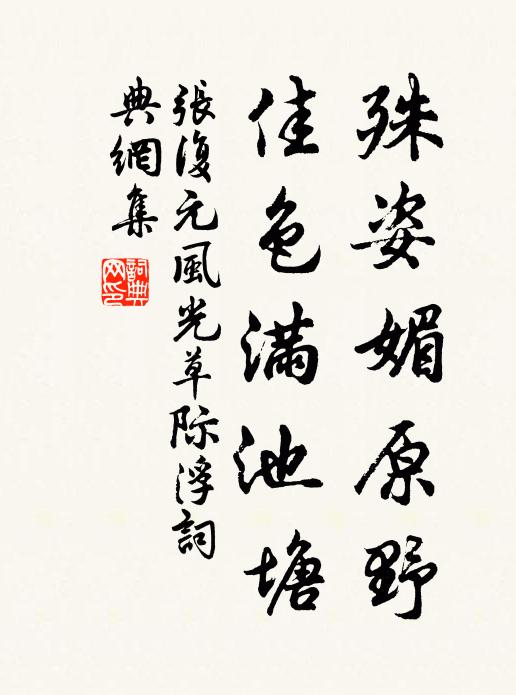 殊姿媚原野
佳色滿池塘
張復元風光草际浮詞
典網集
詞典
网印